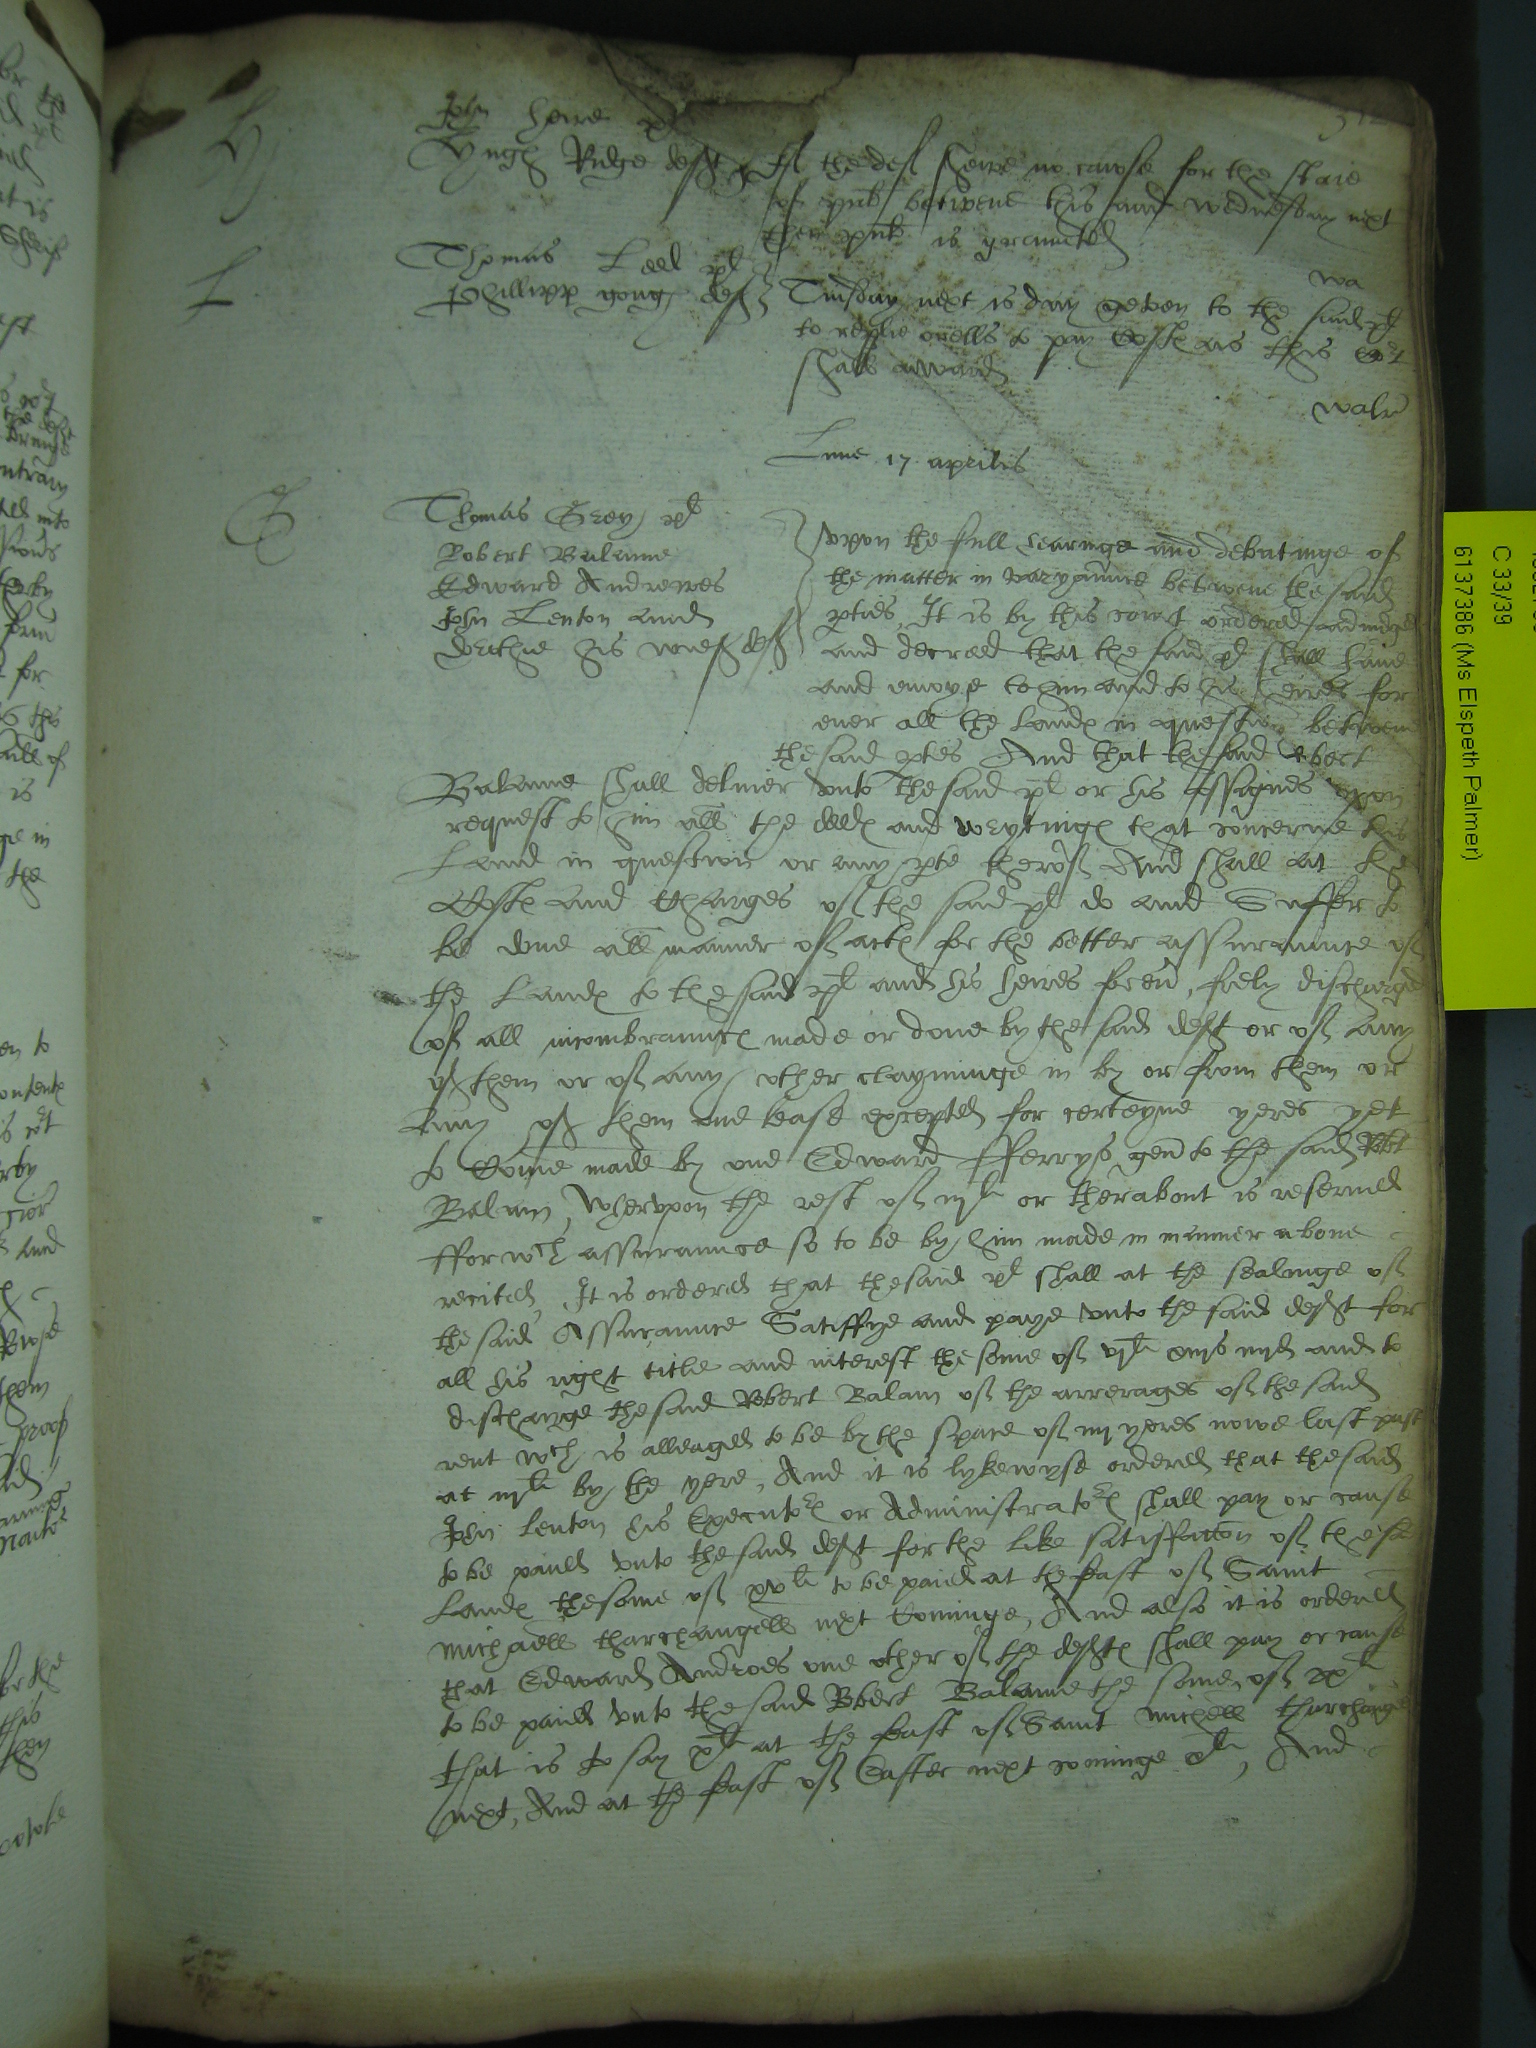 312
H
John heire pl
Hugh Ridge deft yf the def shewe no cawse for the staie
of publ betwene this and wednesday next
then publ is graunted
wa
L
Thomas Leed pl
Phillipp yong deft Tuisday next is day geven to the said pl
to replie or ells to pay Costes as this Cort
shall award
walr
Lune 17 aprilis
G
Thomas Grey pl
Robert Balame
Edward Andrewes
John Lenton and
his wief deft
Vpon the full hearinge and debatinge of
the matter in varyaunce betwene the said
pties, It is by this court ordered adiudged
and decreed that the said pl shall haue
and enioye to him and to his heires for
euer all the Landes in question betwene
the said pties And that the said Robert
Balame shall deliuer vnto the said pl or his assignes vpon
request to him all the deedes and wrytinges that concerne this
Land in question or any pte therof And shall at the
Costes and Charges of the said pl do and Suffer to
be done all manner of actes for the better assuraunce of
the Landes to the said pl and his heires for eu, freely discharged
of all incombraunces made or done by the said deft or of any
of them or of any other claymинge in by or from them or
any of them one lease excepted for certeyne yeres yet
to Come made by one Edward fferrys gen to the said Robt
Balam, Whervpon the rest of iijli or therabout is reserued
ffor wch assuraunce so to be by him made in manner aboue
recited, It is ordered that the said pl shall at the sealinge of
the said Assuraunce Satiffye and paye vnto the said deft for
all his right title and interest the some of vjli xiijs iiijd and to
discharge the said Robert Balam of the arrerages of the said
rent wch is alleaged to be by the space of iij yeres nowe last past
at iijli by the yere, And it is lykewyse ordered that the said
John Lenton his Executors or Administrators shall pay or cause
to be paied vnto the said deft for the like satisfaccon of the sd
Landes the some of xvli to be paied at the feast of Saint
Michaell tharchangell next Cominge, And also it is ordered
that Edward Androes one other of the deftes shall pay or cause
to be paied vnto the said Robert Balame the some of xxli
that is to say xli at the feast of Saint Michell tharchangell
next, And at the feast of Easter next cominge xli, And
C 33/39
6137386 (Ms Elspeth Palmer)